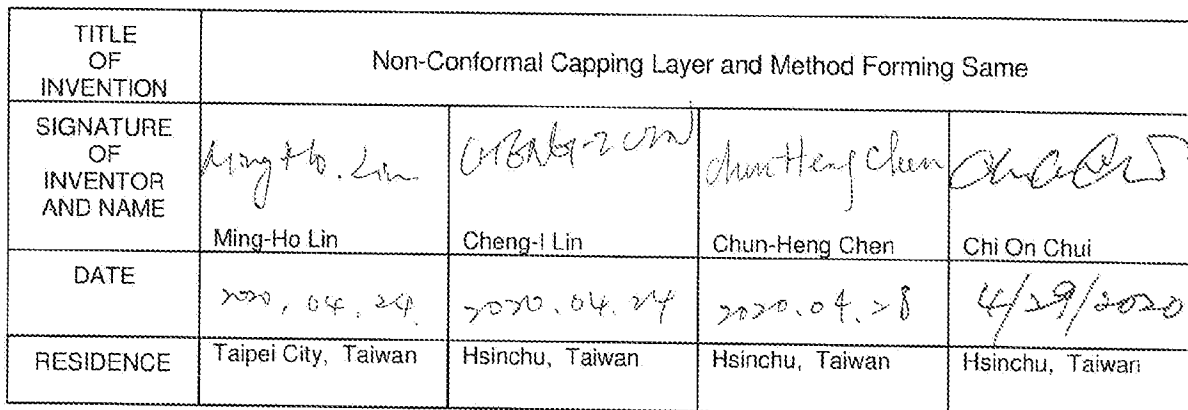 TITLE
OF
INVENTION
Non-Conformal Capping Layer and Method Forming Same
SIGNATURE
OF
INVENTOR
AND NAME
Ming Ho. Lin
CHENG-I LIN
Chun Heng Chen
Ming-Ho Lin
Cheng-I Lin
Chun-Heng Chen
Chi On Chui
DATE
2020.04.24.
2020.04.24
2020.04.28
4/29/2020
RESIDENCE
Taipei City, Taiwan
Hsinchu, Taiwan
Hsinchu, Taiwan
Hsinchu, Taiwan